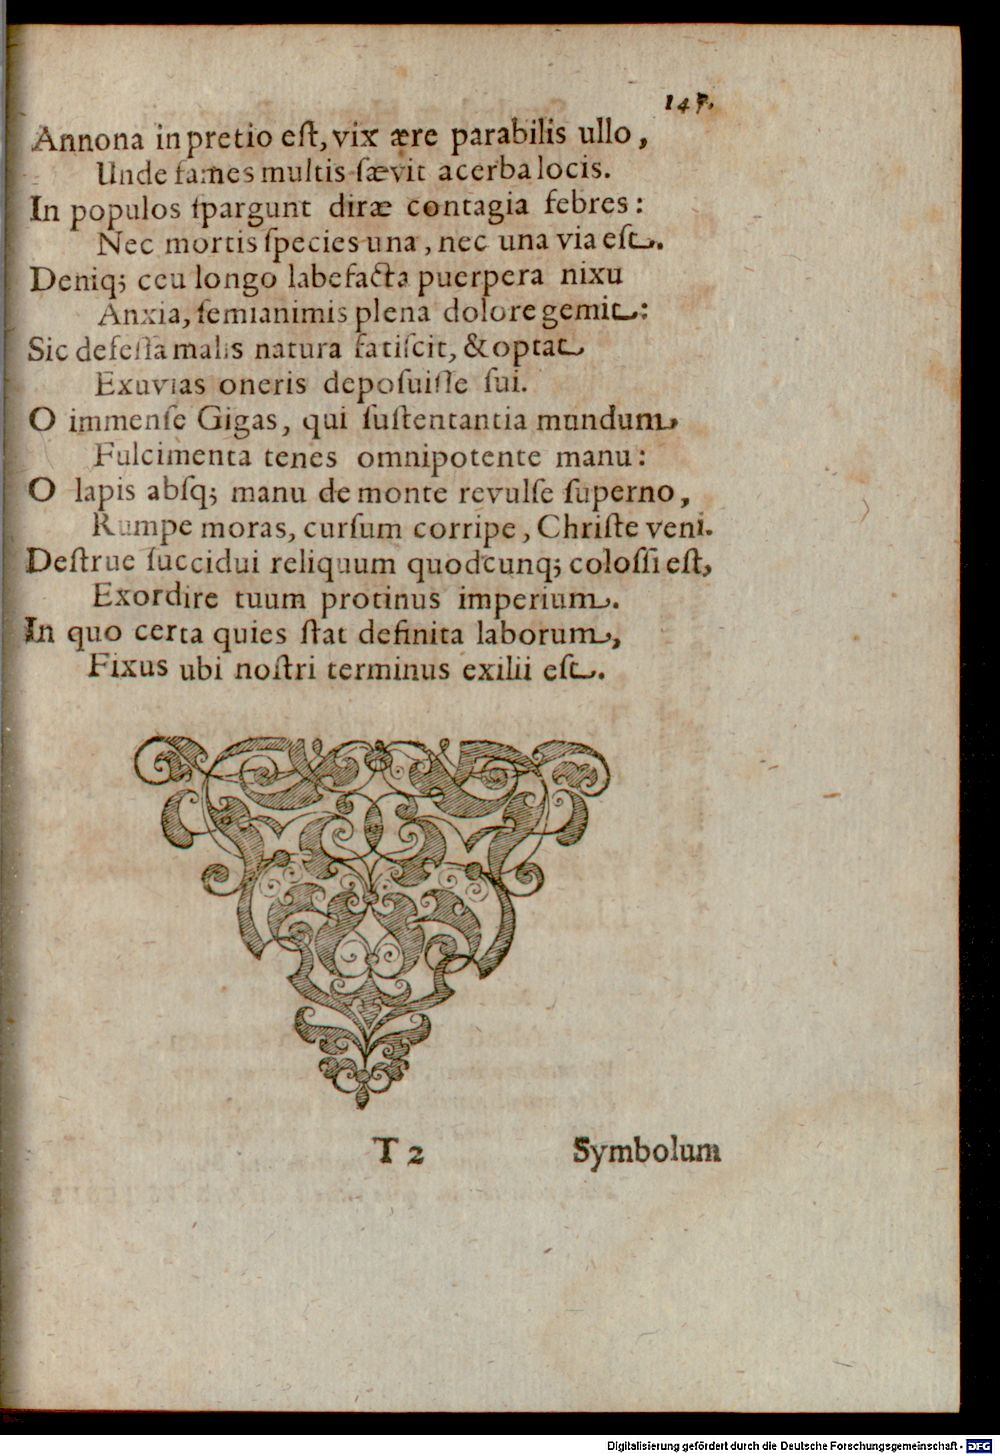 147.
Annona in pretio eſt, vix ære parabilis ullo,
Unde fames multis ſævit acerba locis.
In populos ſpargunt diræ contagia febres:
Nec mortis ſpecies una, nec una via eſt.
Deniq; ceu longo labefacta puerpera nixu
Anxia, ſemianimis plena dolore gemit:
Sic defeſſa malis natura fatiſcit, & optat
Exuvias oneris depoſuiſſe ſui.
O immenſe Gigas, qui ſuſtentantia mundum,
Fulcimenta tenes omnipotente manu:
O lapis abſq; manu de monte revulſe ſuperno,
Rumpe moras, curſum corripe, Chriſte veni.
Deſtrue ſuccidui reliquum quodcunq; coloſſi eſt,
Exordire tuum protinus imperium.
In quo certa quies ſtat definita laborum,
Fixus ubi noſtri terminus exilii eſt.
T 2 Symbolum
Digitalisierung gefördert durch die Deutsche Forschungsgemeinschaft - DFG